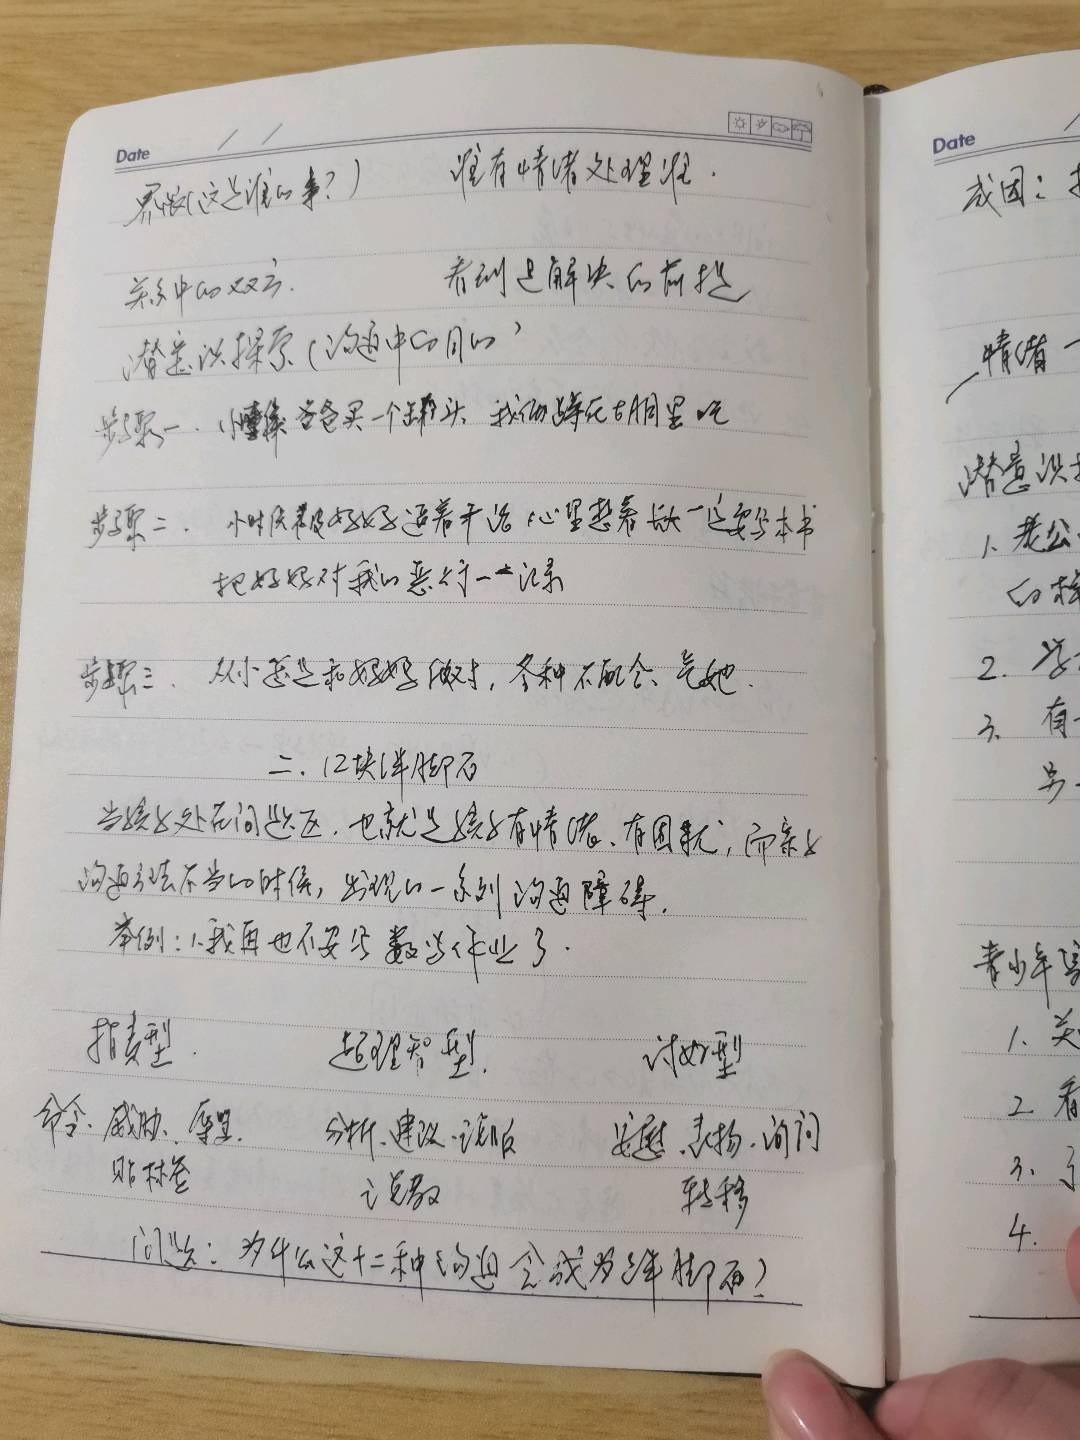 Date
界限(这是谁的事?) 谁有情绪处理谁.
关系中的双方. 看到是解决的前提
潜意识探索(沟通中的目的)
步骤一. 小时候爸爸买一个罐头 我们蹲在胡同里吃
步骤二. 小时候被妈妈逼着干活 心里想着长大一定要写本书
把妈妈对我的恶行一一记录
步骤三. 从小总是和妈妈做对, 各种不配合、气她.
二. 12块绊脚石
当孩子处在问题区. 也就是孩子有情绪、有困扰, 而亲子
沟通方法不当的时候, 出现的一系列沟通障碍.
举例: 1.我再也不要写数学作业了.
指责型. 超理智型. 讨好型
命令、威胁、 安慰.表扬.询问
分析.建议.说服
贴标签 说教 转移
问题: 为什么这十二种沟通会成为绊脚石?
Date
成因:
情绪
潜意识
1. 老公
的
2. 
3. 有
另
青少年
1. 关
2. 看
3.
4.